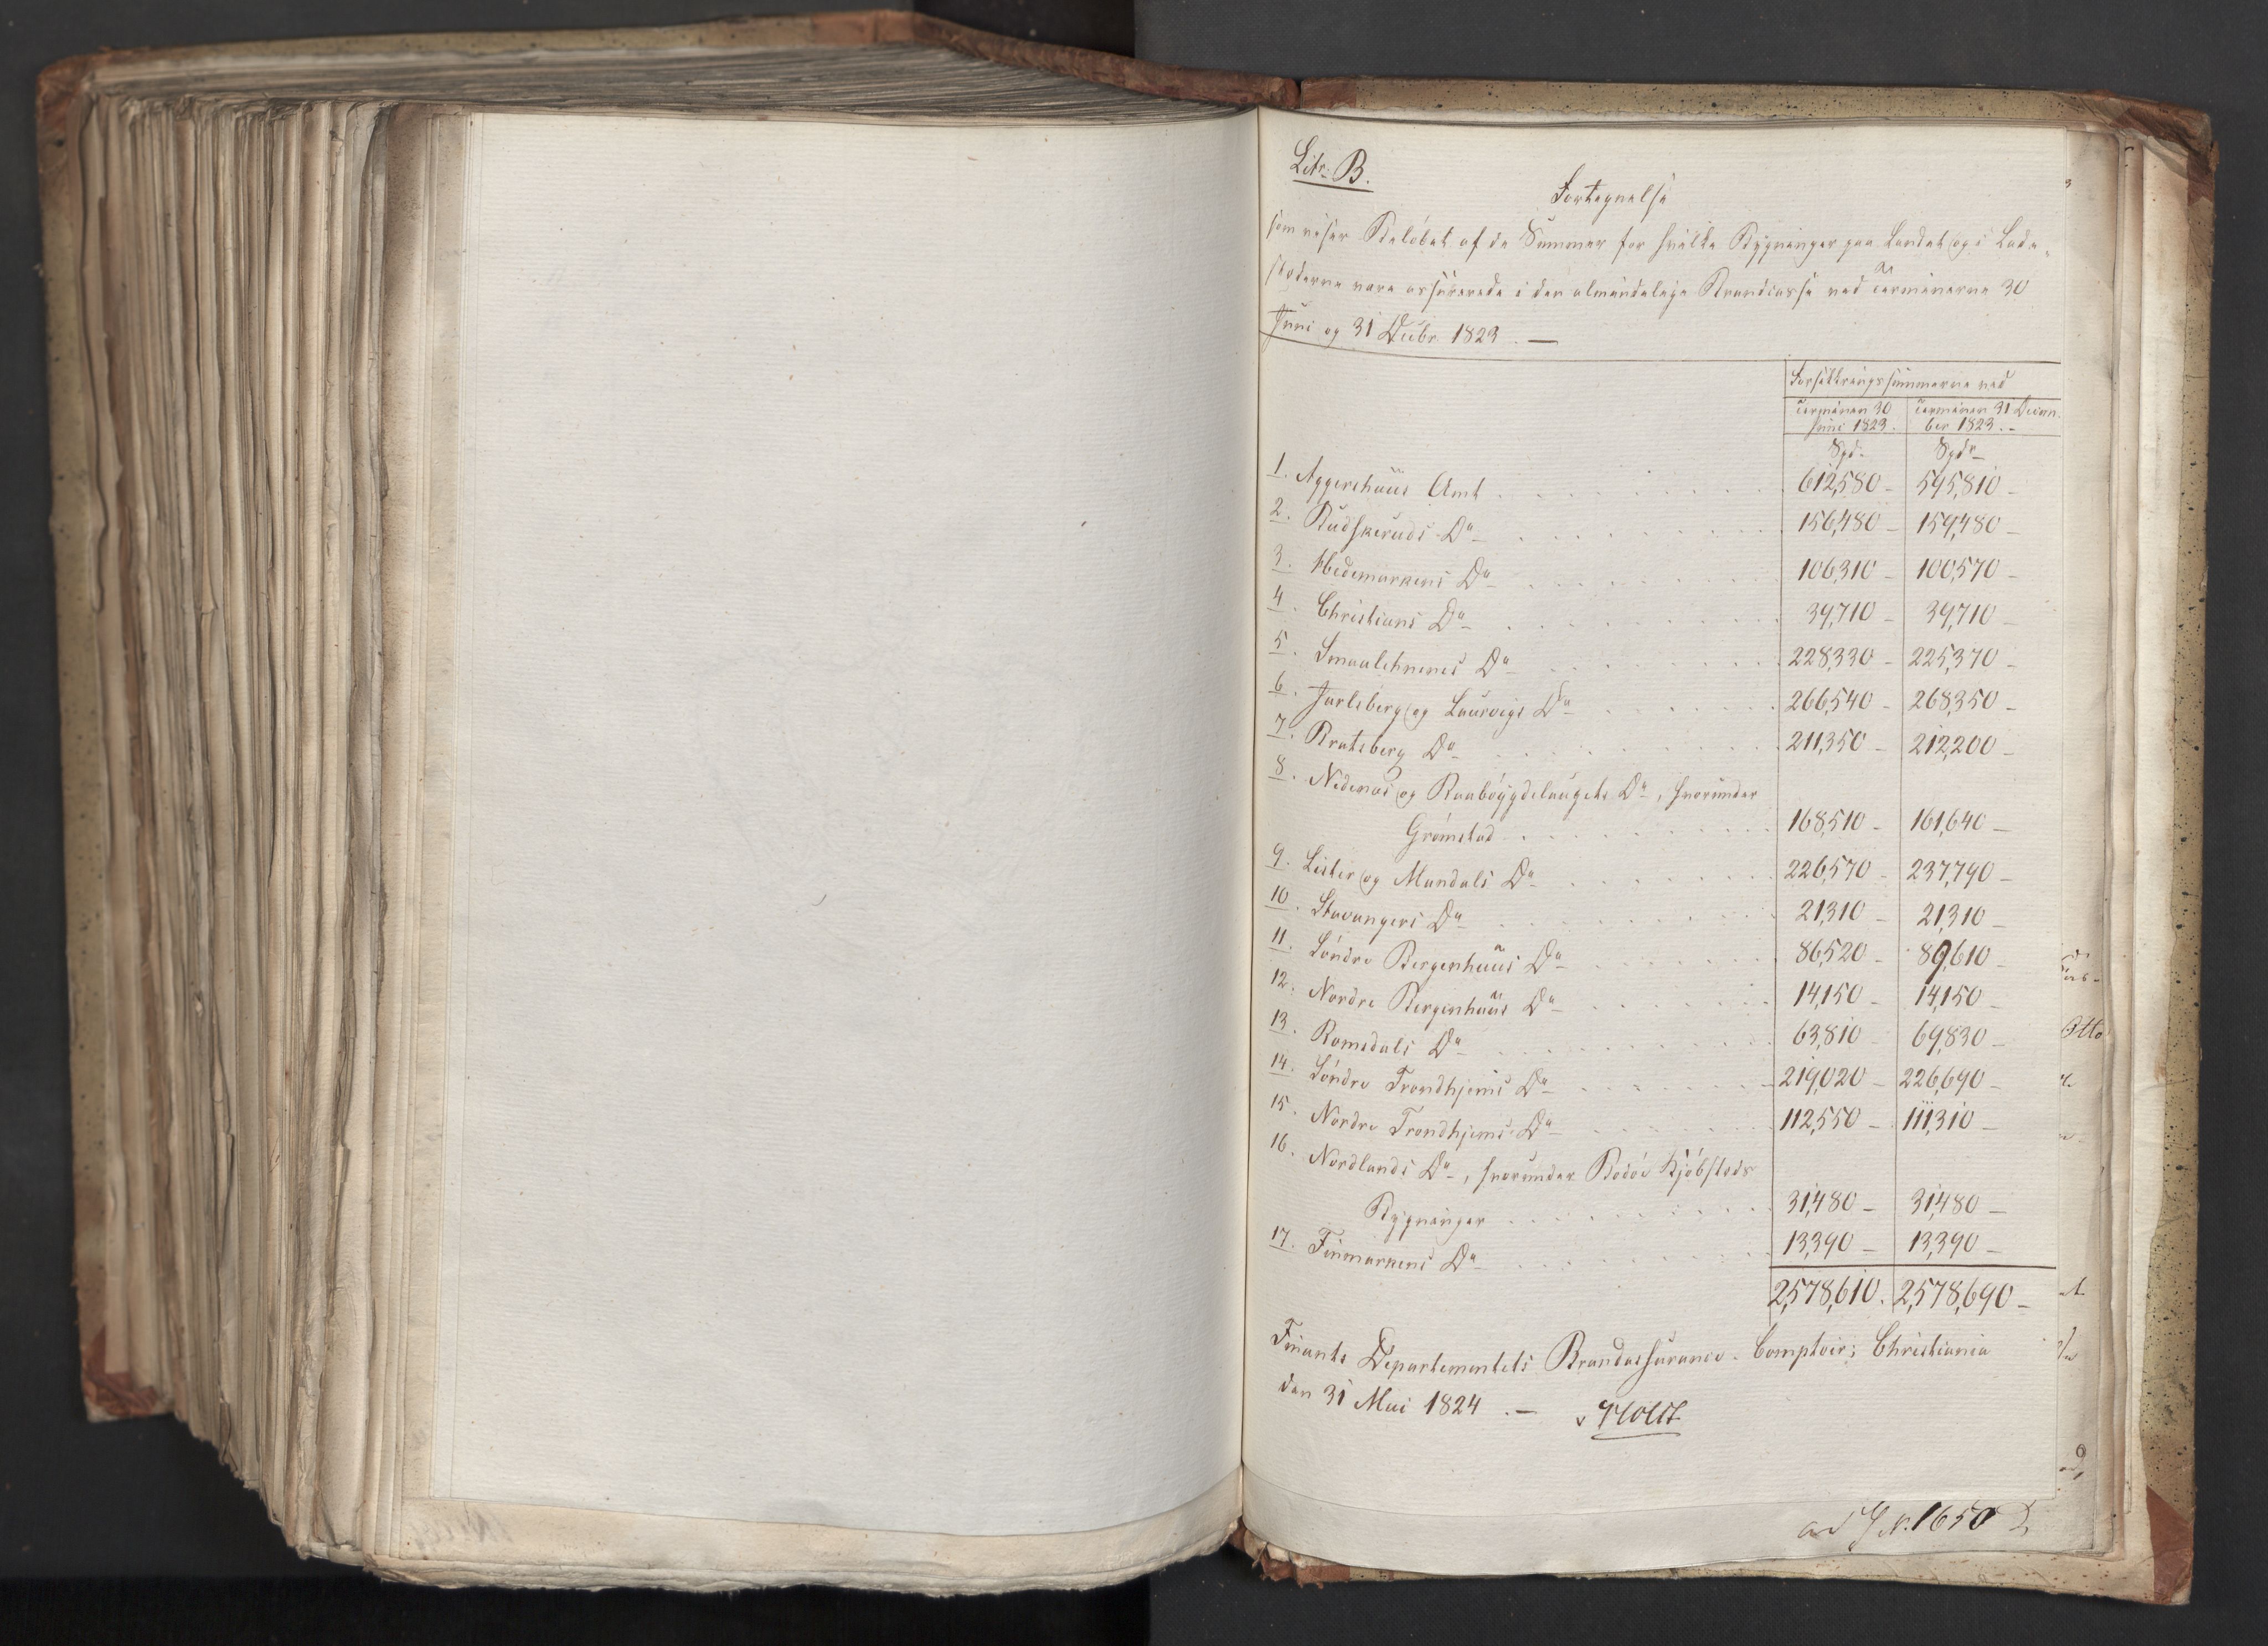 Litr. B.
Fortegnelse
som viser Beløbet af de Summer for hvilke Bygninger paa Landet og i Lade-
stæderne vare assurerede i den almindelige Brandcasse ved Terminerne 30
Juni og 31 Decbr 1823. —
Forsikkringssummerne ved
Terminen 30 Terminen 31 Decem-
Juni 1823. ber 1823. –
Spd. Spdr
1. Aggershuus Amt 612,580 – 595,810 –
2. Budskeruds Do 156,480 – 159,480 –
3. Hedemarkens Do 106,310 – 100,570 –
4. Christians Do 39,710 – 39,710 –
5. Smaalehnenes Do 228,330 – 225,370 –
6. Jarlsberg og Laurvigs Do 266,540 – 268,350 –
7. Bratsberg Do 211,350 – 212,200 –
8. Nedenæs og Raabøygdelaugets Do, hvorunder
Grømstad 168,510 – 161,640 –
9. Lister og Mandals Do 226,570 – 237,790 –
10. Stavangers Do 21,310 – 21,310 –
11. Søndre Bergenhuus Do 86,520 – 89,610 –
12. Nordre Bergenhuus Do 14,150 – 14,150 –
13. Romsdals Do 63,810 69,830 –
14. Søndre Trondhjems Do 219,020 – 226,690 –
15. Nordre Trondhjems Do 112,550 – 111,310 –
16. Nordlands Do, hvorunder Bodøe Kjøbsteds
Bygninger 31,480 – 31,480 –
17. Finmarkens Do 13,390 – 13,390 –
2,578,610. 2,578,690 –
Finants Departementets Brandassurance-Comptoir; Christiania
den 31 Mai 1824. — Holst
ad J N. 1650
Otto